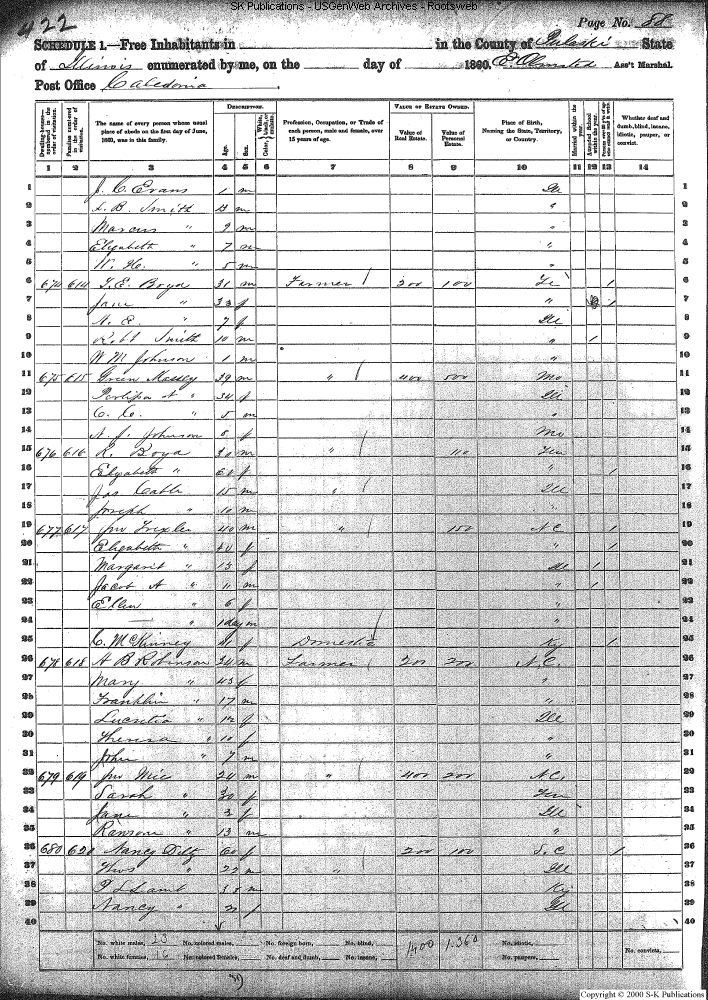 SK Publications - USGenWeb Archives - Rootsweb
422
Page No. 88
SCHEDULE 1.—Free Inhabitants in in the County of Pulaski State
of Illinois enumerated by me, on the day of 1860. E. Olmsted Ass't Marshal.
Post Office Caledonia
Dwelling-houses—numbered in the order of visitation.
Families numbered in the order of visitation.
The name of every person whose usual place of abode on the first day of June, 1860, was in this family.
DESCRIPTION.
Age.
Sex.
Color, White, black, or mulatto.
Profession, Occupation, or Trade of each person, male and female, over 15 years of age.
VALUE OF ESTATE OWNED.
Value of Real Estate.
Value of Personal Estate.
Place of Birth, Naming the State, Territory, or Country.
Married within the year.
Attended School within the year.
Whether deaf and dumb, blind, insane, idiotic, pauper, or convict.
1 2 3 4 5 6 7 8 9 10 11 12 13 14
1 J. C. Evans 1 m Ill 1
2 B. Smith m " 2
3 Marcus " 9 m " 3
4 Elizabeth " 7 m " 4
5 W. H. " 5 m " 5
6 674 614 J. E. Boyd 31 m Farmer 200 100 1 6
7 Jane " 33 f " 1 7
8 " 7 f Ill 8
9 Robt Smith 10 m " 1 9
10 W M Johnson 1 m " 10
11 675 615 Green Massey 39 m " 400 500 Mo 11
12 " 34 f Ill 12
13 C. C. " 5 m " 13
14 A. J. Johnson f Mo 14
15 676 616 Boyd 30 m " 110 Ten 15
16 Elizabeth " f " 1 16
17 Jas Cable 15 m " Ill 17
18 Joseph " 10 m " 18
19 677 617 Jno Trexler 40 m " 150 N.C 1 19
20 Elizabeth " 40 f " 1 20
21 Margaret " 13 f Ill 1 21
22 Jacob A " 11 m " 1 22
23 Ellen " 6 f " 23
24 — " 1 day m " 24
25 C. McKinney f Domestic Ky 1 25
26 678 618 A B Robinson 34 m Farmer 200 200 N.C. 26
27 Mary " 43 f " 27
28 Franklin " 17 m " 28
29 Lucretia " 12 f Ill 29
30 Theresa " 10 f " 30
31 John " 7 m " 31
32 679 619 Jno Mic 24 m " 400 200 N.C. 32
33 Sarah " 30 f Ten 33
34 Jane " 3 f Ill 34
35 Ransom " 13 m " 35
36 680 620 Nancy 60 f 200 100 S.C 1 36
37 Thos " 22 m " Ill 37
38 Lamb 38 m Ky 38
39 Nancy " f Ill 39
40 40
No. white males, 23 No. colored males, No. foreign born, No. blind, 1400 1.360 No. idiotic,
No. white females, 16 No. colored females, No. deaf and dumb, No. insane, No. paupers, No. convicts,
39
Copyright © 2000 S-K Publications